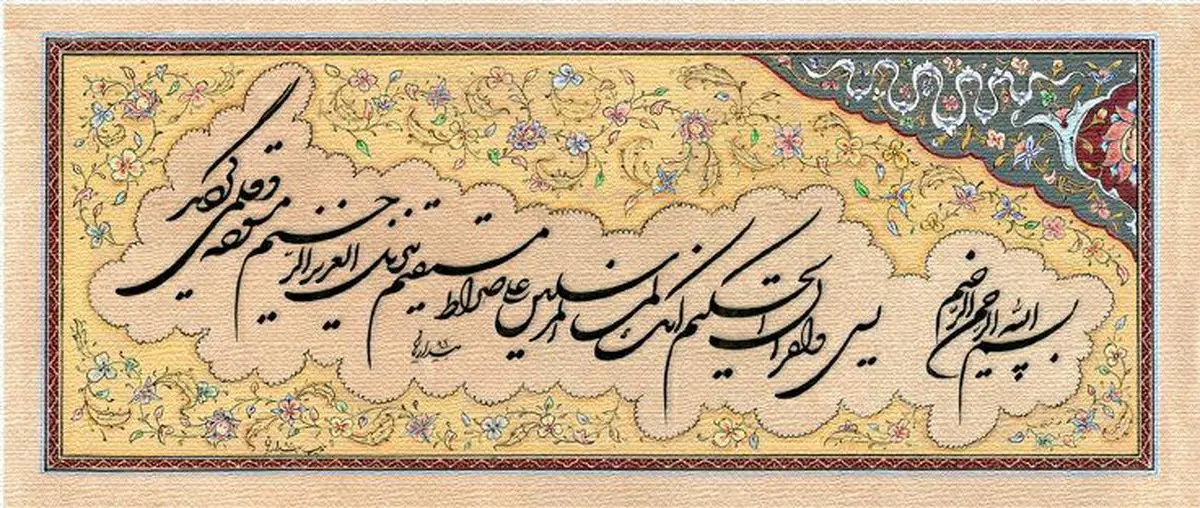 بسم الله الرحمن الرحیم
یس والقرآن الحکیم انک لمن المرسلین علی صراط مستقیم تنزیل العزیز الرحیم